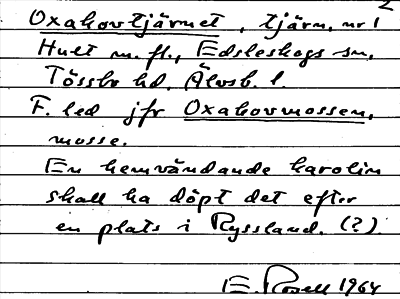 2
Oxakovtjärnet, tjärn, nr 1
Hult m. fl., Edsleskogs sn,
Tössbo hd. Älvsb. l.
F. led jfr Oxakovmossen,
mosse.
En hemvändande karolin
skall ha döpt det efter
en plats i Ryssland. (?)
E. Rosell 1964